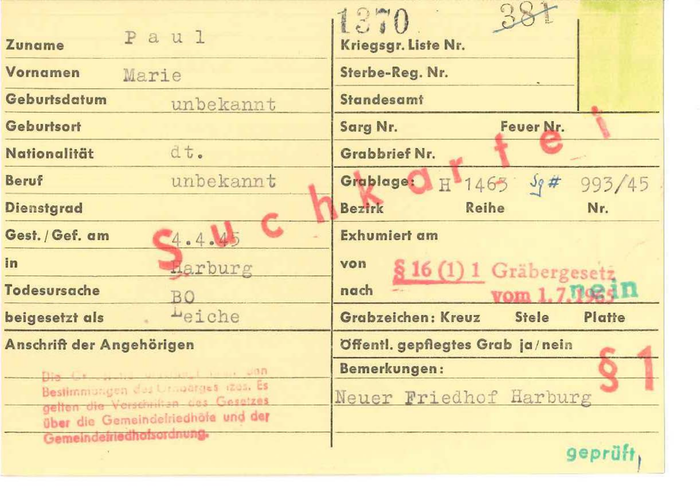 1370 381
Zuname Paul
Vornamen Marie
Geburtsdatum unbekannt
Geburtsort
Nationalität dt.
Beruf unbekannt
Dienstgrad
Gest./Gef. am 4.4.45
in Harburg
Todesursache BO
beigesetzt als Leiche
Anschrift der Angehörigen
Bestimmungen des
Es
gelten die Vorschriften des Gesetzes
über die Gemeindefriedhöfe und der
Gemeindefriedhofsordnung.
Kriegsgr. Liste Nr.
Sterbe-Reg. Nr.
Standesamt
Sarg Nr. Feuer Nr.
Grabbrief Nr.
Grablage: H 1463 Sg# 993/45
Bezirk Reihe Nr.
Exhumiert am
von § 16 (1) 1 Gräbergesetz
nach vom 1.7.1965 nein
Grabzeichen: Kreuz Stele Platte
Öffentl. gepflegtes Grab ja/nein
Bemerkungen: § 1
Neuer Friedhof Harburg
geprüft
Suchkartei